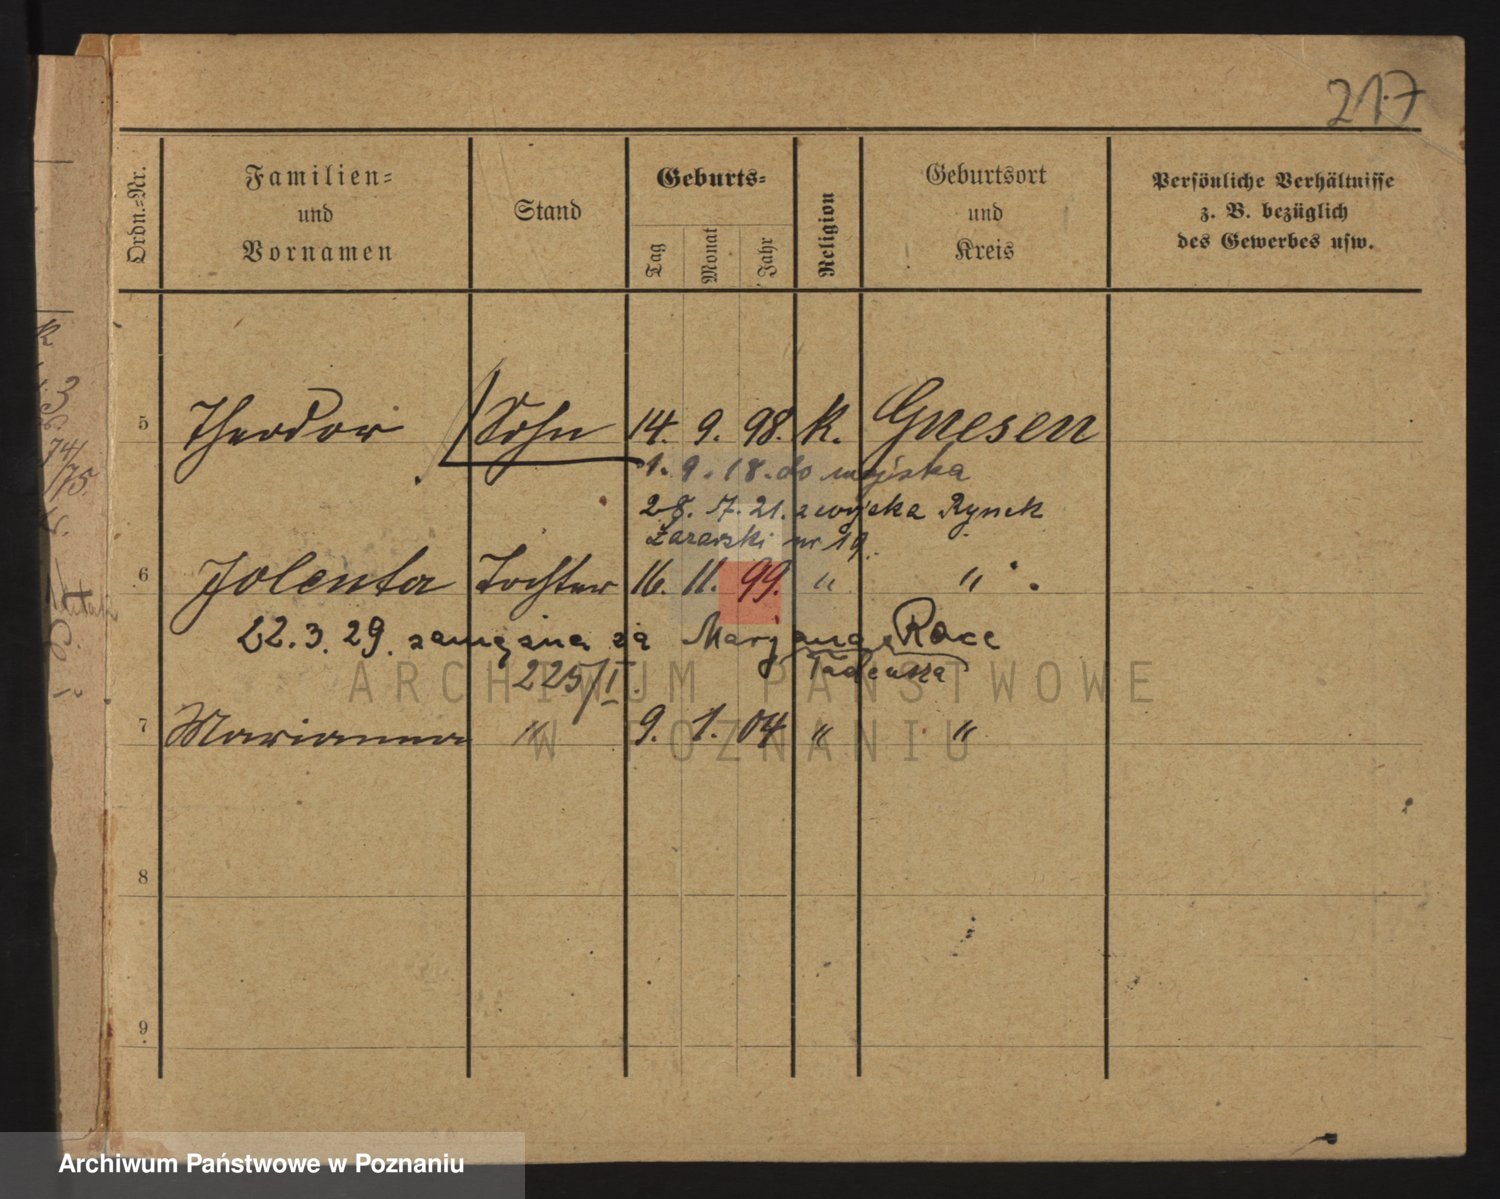 217
Ordn.-Nr.
Familien-
und
Vornamen
Stand
Geburts-
Tag
Monat
Jahr
Religion
Geburtsort
und
Kreis
Persönliche Verhältnisse
z. B. bezüglich
des Gewerbes usw.
5 Theodor Sohn 14. 9. 98. k. Gnesen
1. 9. 18. do wojska
28. 7. 21. z wojska Rynek
Łazarski nr 19.
6 Jolenta Tochter 16. 11. 99. " "
22. 3. 29. zamężna za Marjana Race
Tadeusza
225/I.
7 Marianna " 9. 1. 04. " "
8
9
ARCHIWUM PAŃSTWOWE
W POZNANIU
Archiwum Państwowe w Poznaniu